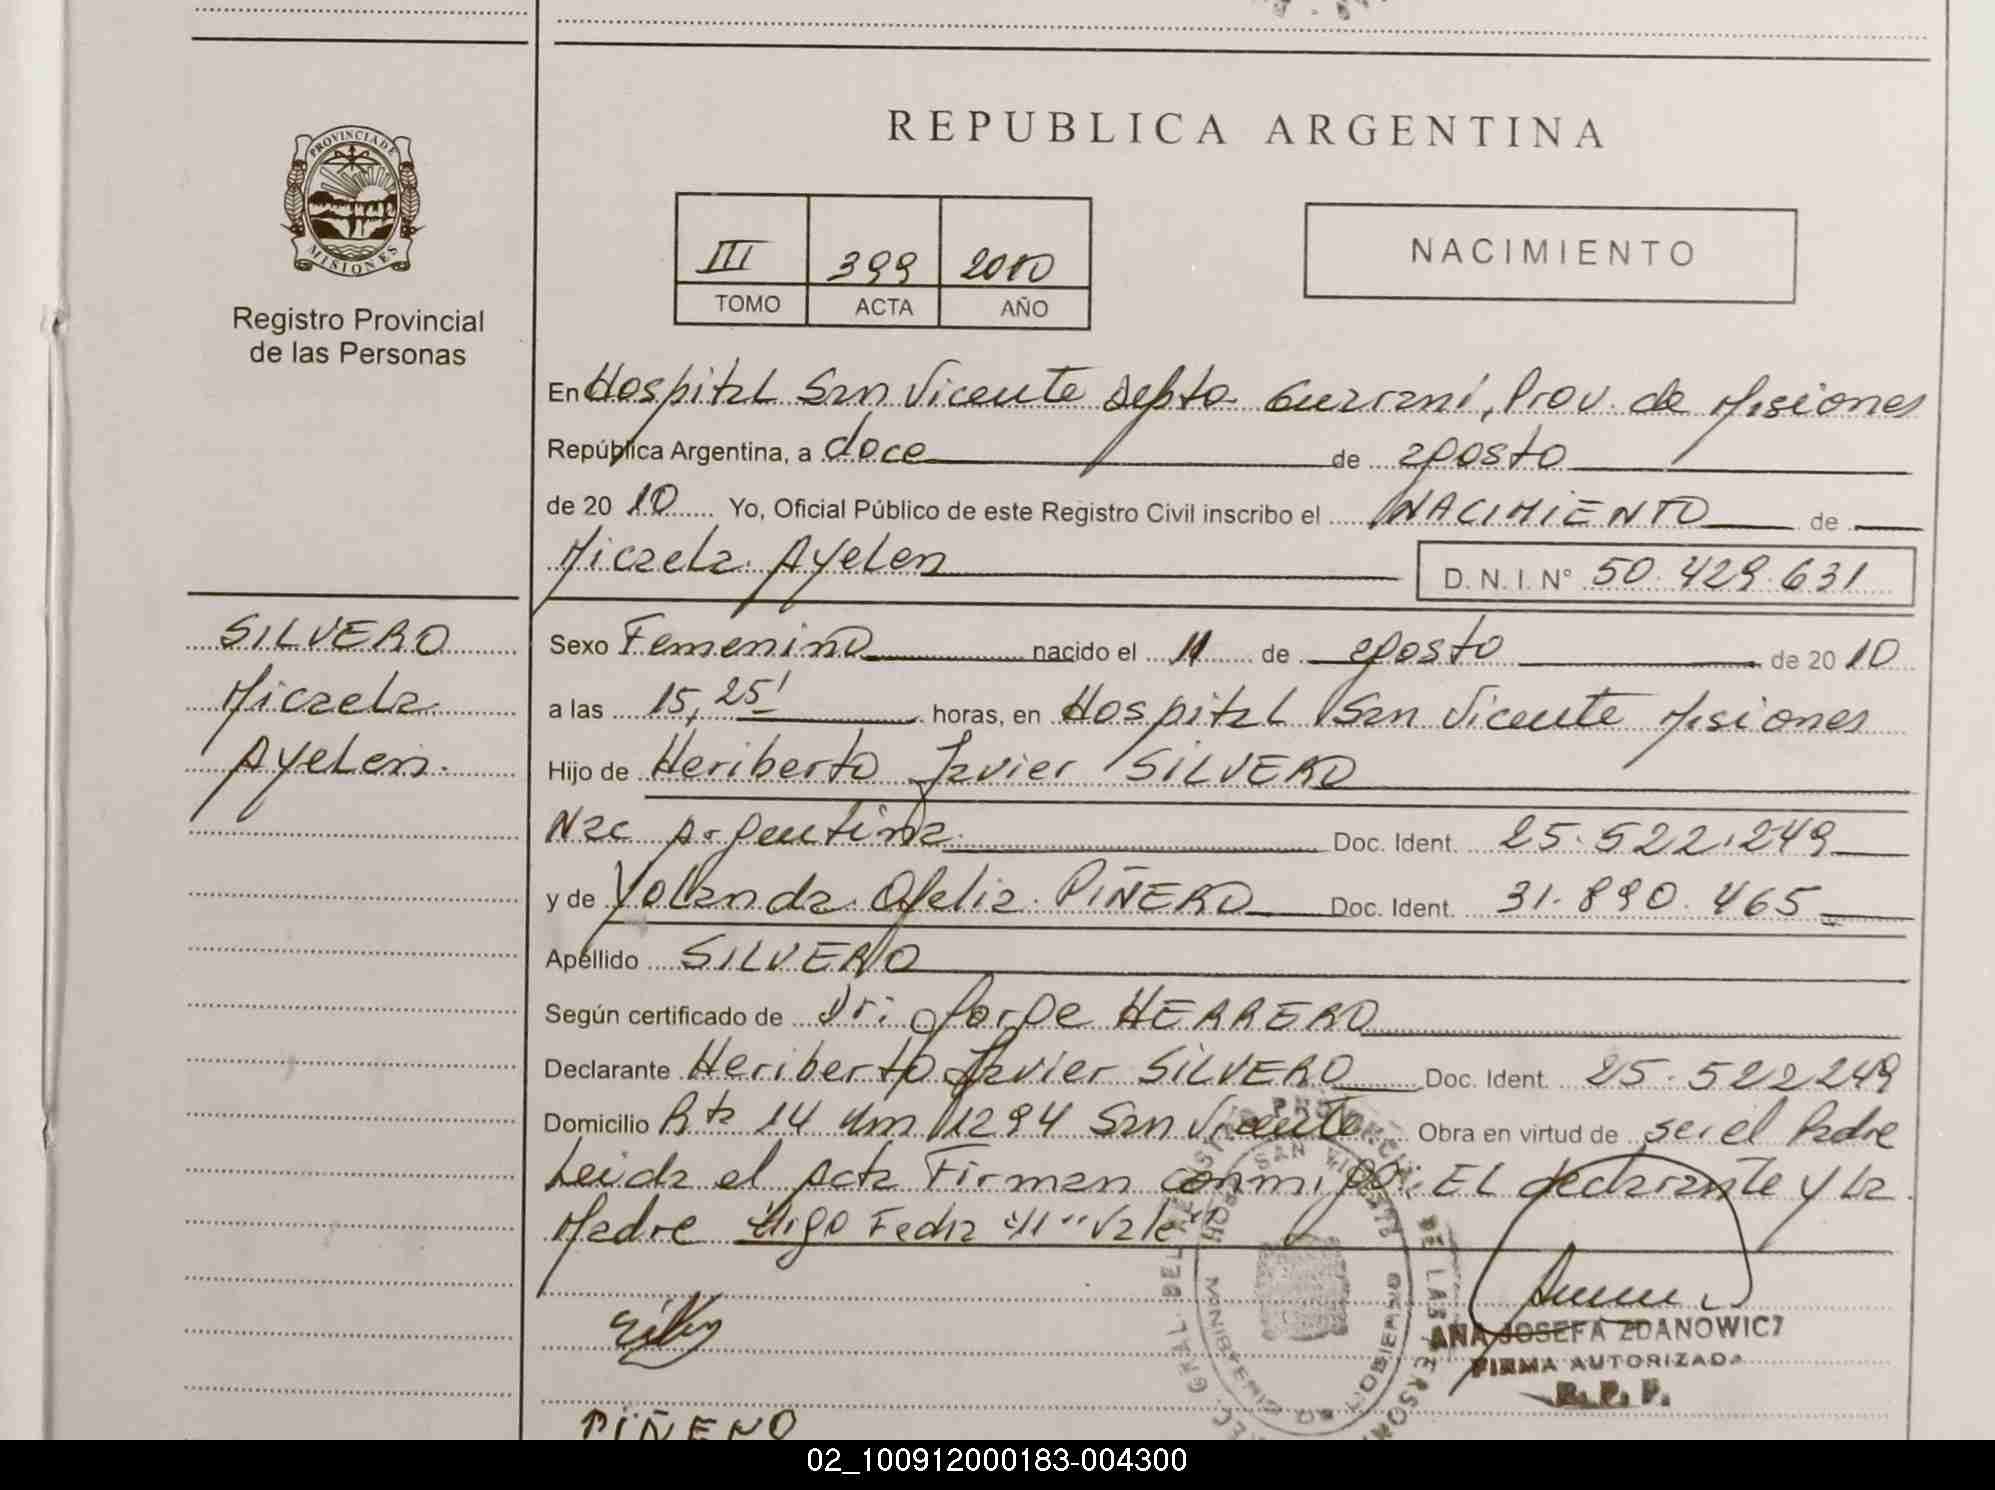 REPUBLICA ARGENTINA
PROVINCIA DE
MISIONES
Registro Provincial
de las Personas
III 399 2010
TOMO ACTA AÑO
NACIMIENTO
En Hospital San Vicente Depto Guarani, Prov. de Misiones
República Argentina, a doce de agosto
de 20 10 Yo, Oficial Público de este Registro Civil inscribo el NACIMIENTO de
Micaela Ayelen D. N. I. N° 50.429.631
SILVERO
Micaela
Ayelen.
Sexo Femenino nacido el 11 de agosto de 20 10
a las 15,25' horas, en Hospital San Vicente Misiones
Hijo de Heriberto Javier SILVERO
Nac Argentina Doc. Ident. 25.522.249
y de Yolanda Ofelia PIÑERO Doc. Ident. 31.890.465
Apellido SILVERO
Según certificado de Dr: Jorge HERRERO
Declarante Heriberto Javier SILVERO Doc. Ident. 25.522249
Domicilio Rta 14 Km 1294 San Vicente Obra en virtud de ser el Padre
Leida el Acta Firman conmigo: EL declarante y la
Madre Digo Fecha "11" Vale"
HOSP. SAN VICENTE
MINISTERIO DE GOBIERNO
ANA JOSEFA ZDANOWICZ
FIRMA AUTORIZADA
R. P. P.
PIÑERO
02_100912000183-004300